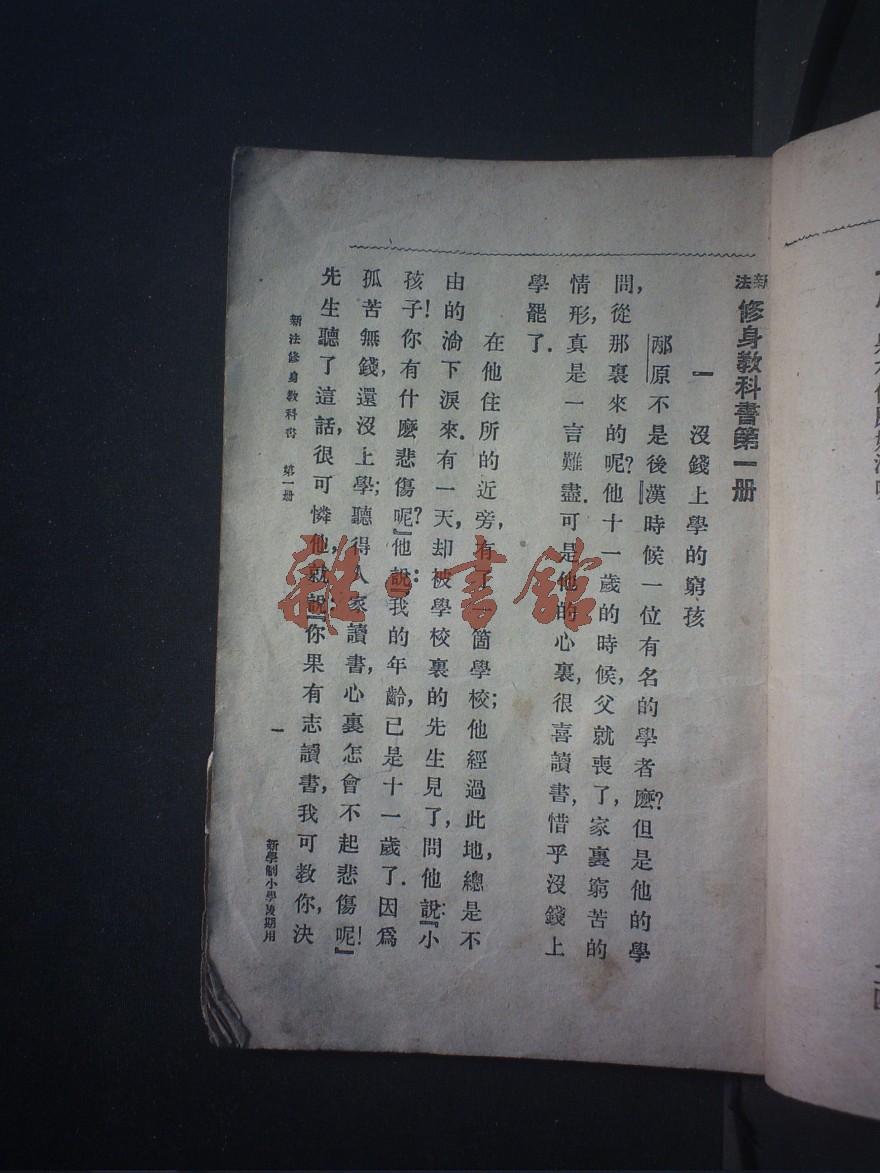 新法修身教科書第一册
一 沒錢上學的窮孩
邴原不是後漢時候一位有名的學者麽?但是他的學
問,從那裏來的呢?他十一歲的時候,父就喪了,家裏窮苦的
情形,真是一言難盡.可是他的心裏,很喜讀書,惜乎沒錢上
學罷了.
在他住所的近旁,有了一箇學校;他經過此地,總是不
由的淌下淚來.有一天,却被學校裏的先生見了,問他說:『小
孩子!你有什麽悲傷呢?』他說:『我的年齡,已是十一歲了.因爲
孤苦無錢,還沒上學;聽得人家讀書,心裏怎會不起悲傷呢!』
先生聽了這話,很可憐他,就說:『你果有志讀書,我可教你,決
新法修身教科書 第一册
一
新學制小學後期用
雜·書館